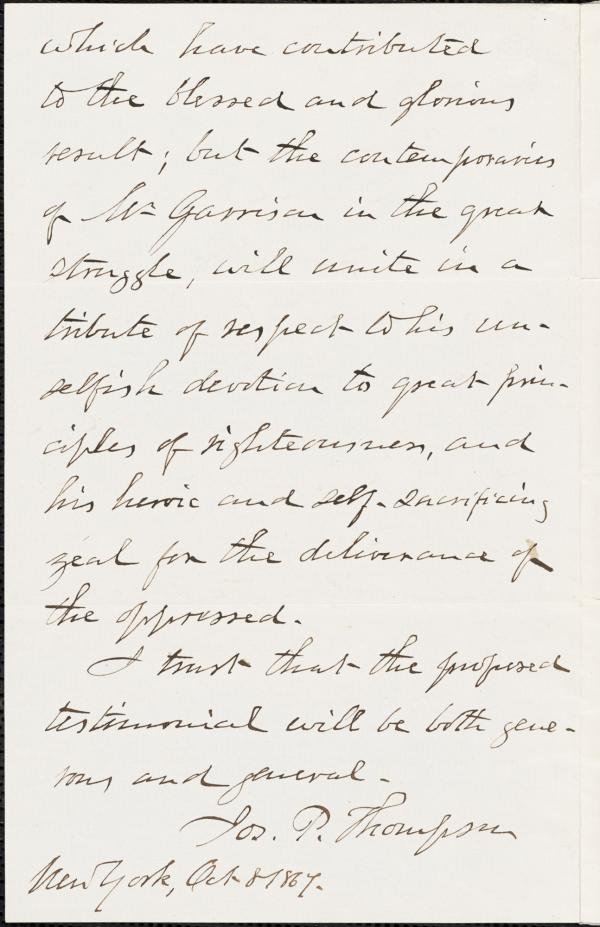 which have contributed
to the blessed and glorious
result; but the contemporaries
of Mr Garrison in the great
struggle, will unite in a
tribute of respect to his un-
selfish devotion to great prin-
ciples of righteousness, and
his heroic and self-sacrificing
zeal for the deliverance of
the oppressed.
I trust that the proposed
testimonial will be both gene-
rous and general.
Jos. P. Thompson
New York, Oct 8 1867.